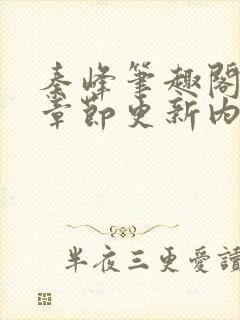 秦峰筆趣閣
章節更新內
半夜三更愛讀